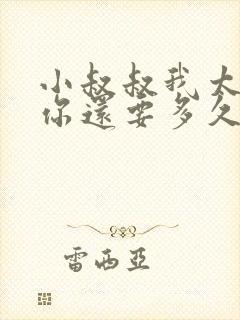 小叔叔我太
你還要多久
雷西亞